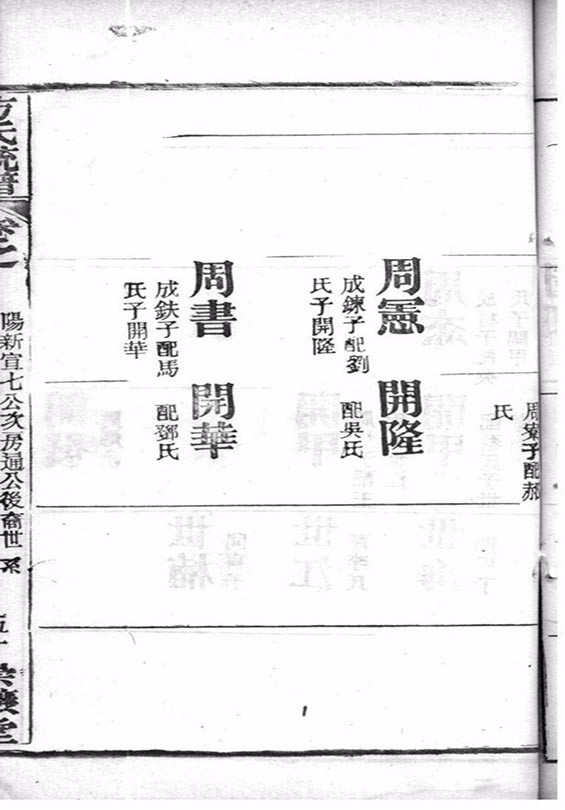 周寮子配郝
氏
周憲
成鍊子配劉
氏子開隆
開隆
配吳氏
周書
成鈇子配馬
氏子開華
開華
配鄧氏
方氏統譜
卷之一
陽新宣七公次房通公後裔世系